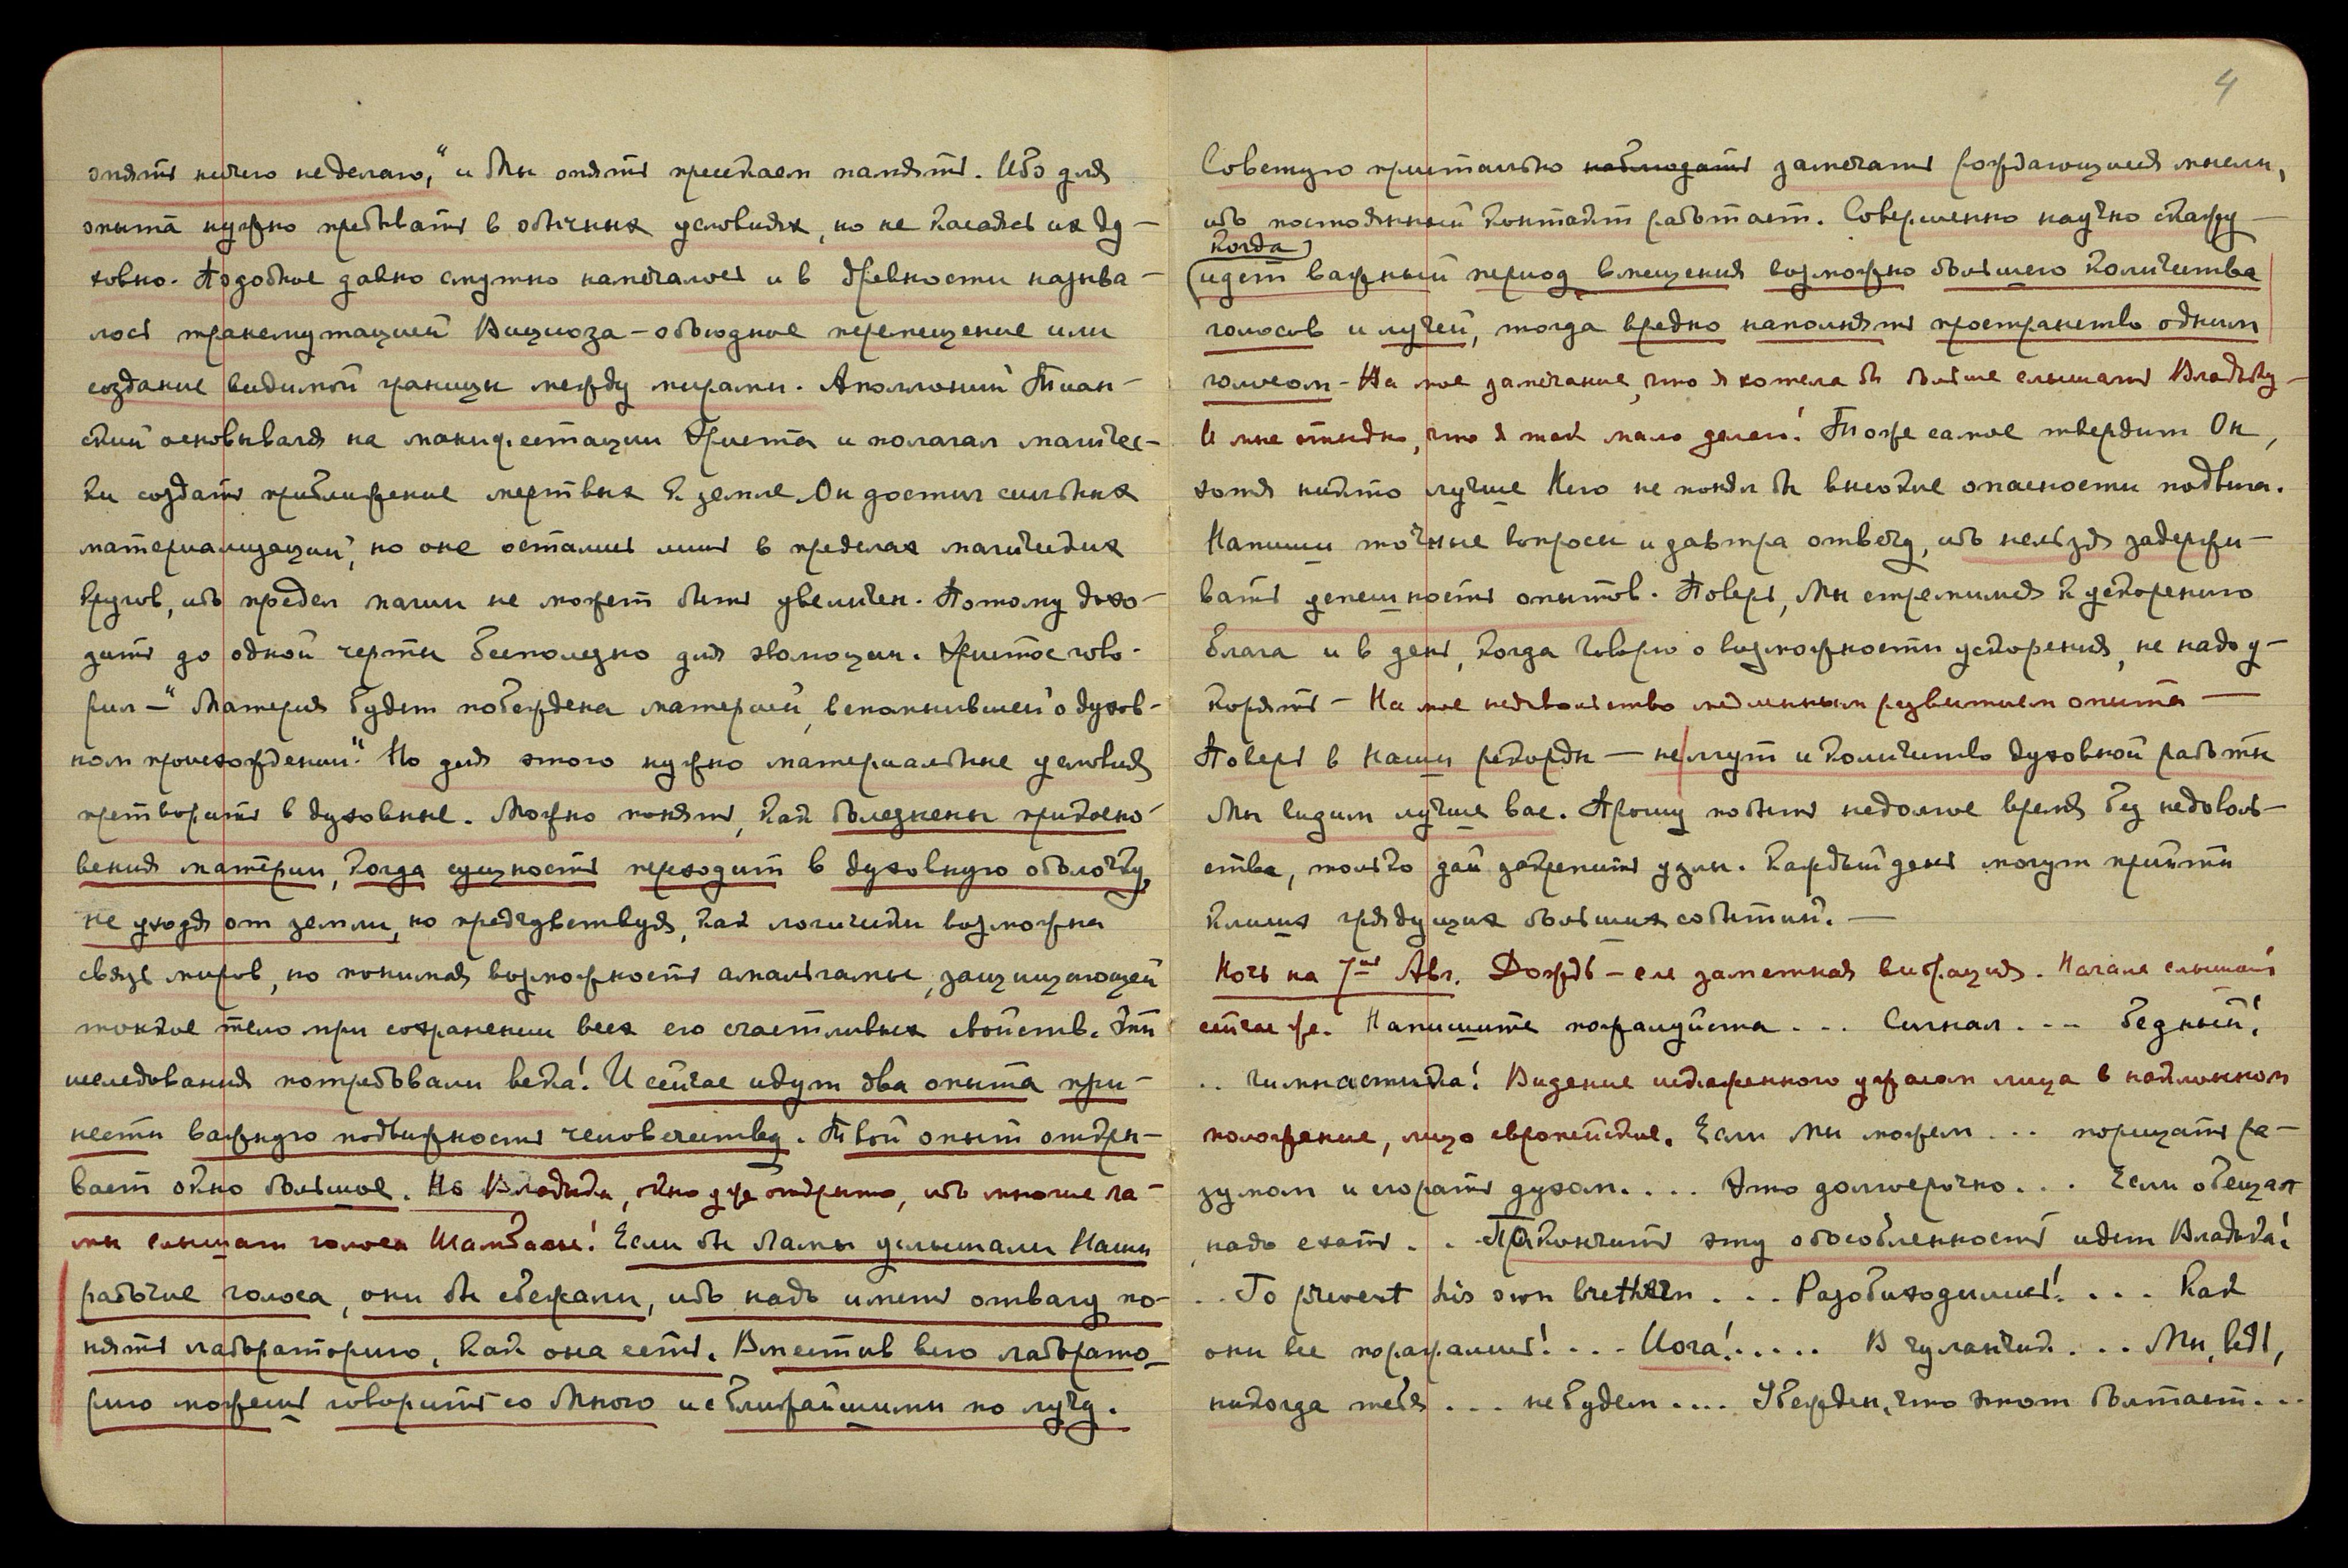 опять ничего неделаю," и Мы опять пресекаем память. Ибо для
опыта нужно пребывать в обычных условиях, но не касаясь их ду-
ховно. Подобное давно смутно намечалось и в древности называ-
лось трансмутацией Вициоза – обоюдное перемещение или
создание видимой границы между мирами. Аполлоний Тиан-
ский основывался на манифестации Христа и полагал магичес-
ки создать приближение мертвых к земле. Он достиг сильных
материализаций, но оне остались лишь в пределах магических
кругов, ибо предел магии не может быть увеличен. Потому дохо-
дить до одной черты бесполезно для эволюции. Христос гово-
рил – "Материя будет побеждена материей, вспомнившей о духов-
ном происхождении". Но для этого нужно материальные условия
претворить в духовные. Можно понять, как болезнены прикосно-
вения материи, когда сущность переходит в духовную оболочку,
не уходя от земли, но предчувствуя, как логически возможна
связь миров, но понимая возможность амальгамы, защищающей
тонкое тело при сохранении всех его счастливых свойств. Эти
исследования потребовали века! И сейчас идут два опыта при-
нести важную подвижность человечеству. Твой опыт откры-
вает окно большое. Но Владыка, окно уже открыто, ибо многие ла-
мы слышат голоса Шамбалы! Если бы Ламы услышали Наши
рабочие голоса, они бы сбежали, ибо надо иметь отвагу по-
нять лабораторию, как она есть. Вместив всю лаборато-
рию можешь говорить со Мною и с ближайшими по лучу.
4
Советую пристально наблюдать замечать рождающиеся мысли,
ибо постоянный контакт работает. Совершенно научно скажу –
когда
идет важный период вмещения возможно большего количества
голосов и лучей, тогда вредно наполнять пространство одним
голосом – На мое замечание, что я хотела бы больше слышать Владыку –
И мне стыдно, что я так мало делаю! Тоже самое твердит Он,
хотя никто лучше Него не понял бы высокие опасности подвига.
Напиши точные вопросы и завтра отвечу, ибо нельзя задержи-
вать успешность опытов. Поверь, Мы стремимся к ускорению
блага и в день, когда Говорю о возможности ускорения, не надо у-
корять – На мое недовольство медленным развитием опыта –
Поверь в Наши рекорды – не лгут и количество духовной работы
Мы видим лучше вас. Прошу побыть недолгое время без недоволь-
ства, только дай закрепить узлы. Каждый день могут прийти
клише грядущих больших событий. –
Ночь на 7ое Авг. Дождь – еле заметная вибрация. Начале слышать
сейчас же. Напишите пожалуйста ... Сигнал ... бедный!
.. гимнастика! Видение искаженного ужасом лица в наклонном
положение, лицо европейское. Если мы можем ... порицать ра-
зумом и сгорать духом.... Это долгосрочно... Если обещал
надо ехать .. Покончить эту обособленность идет Владыка!
.. To prevent his own brethren ... Разобиходились!.... Как
они все поражались! ... Иога!..... В чуланчик.... Мы, ведь,
никогда тебя ... не будем .... Убежден, что этот болтает...